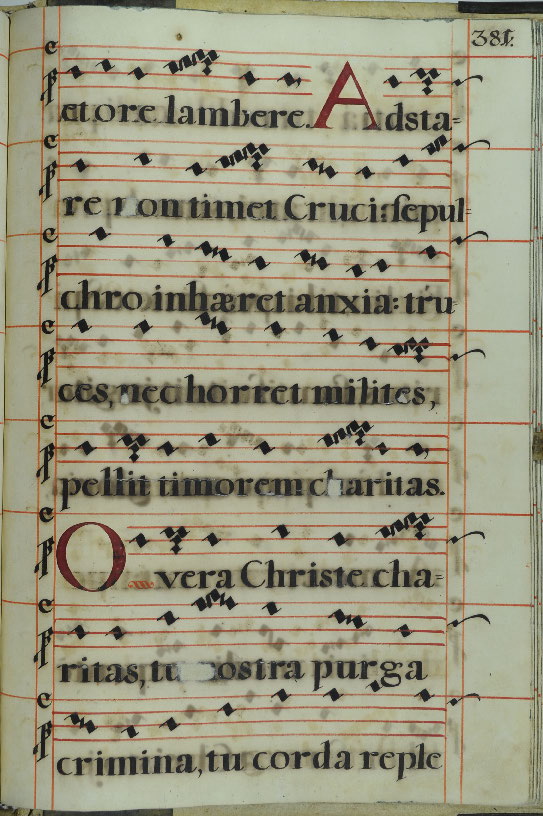 381.
et ore lambere. Adsta=
re non timet Cruci: sepul=
chro inhæret anxia: tru
ces, nec horret milites,
pellit timorem charitas.
O vera Christe cha=
ritas, tu nostra purga
crimina, tu corda reple